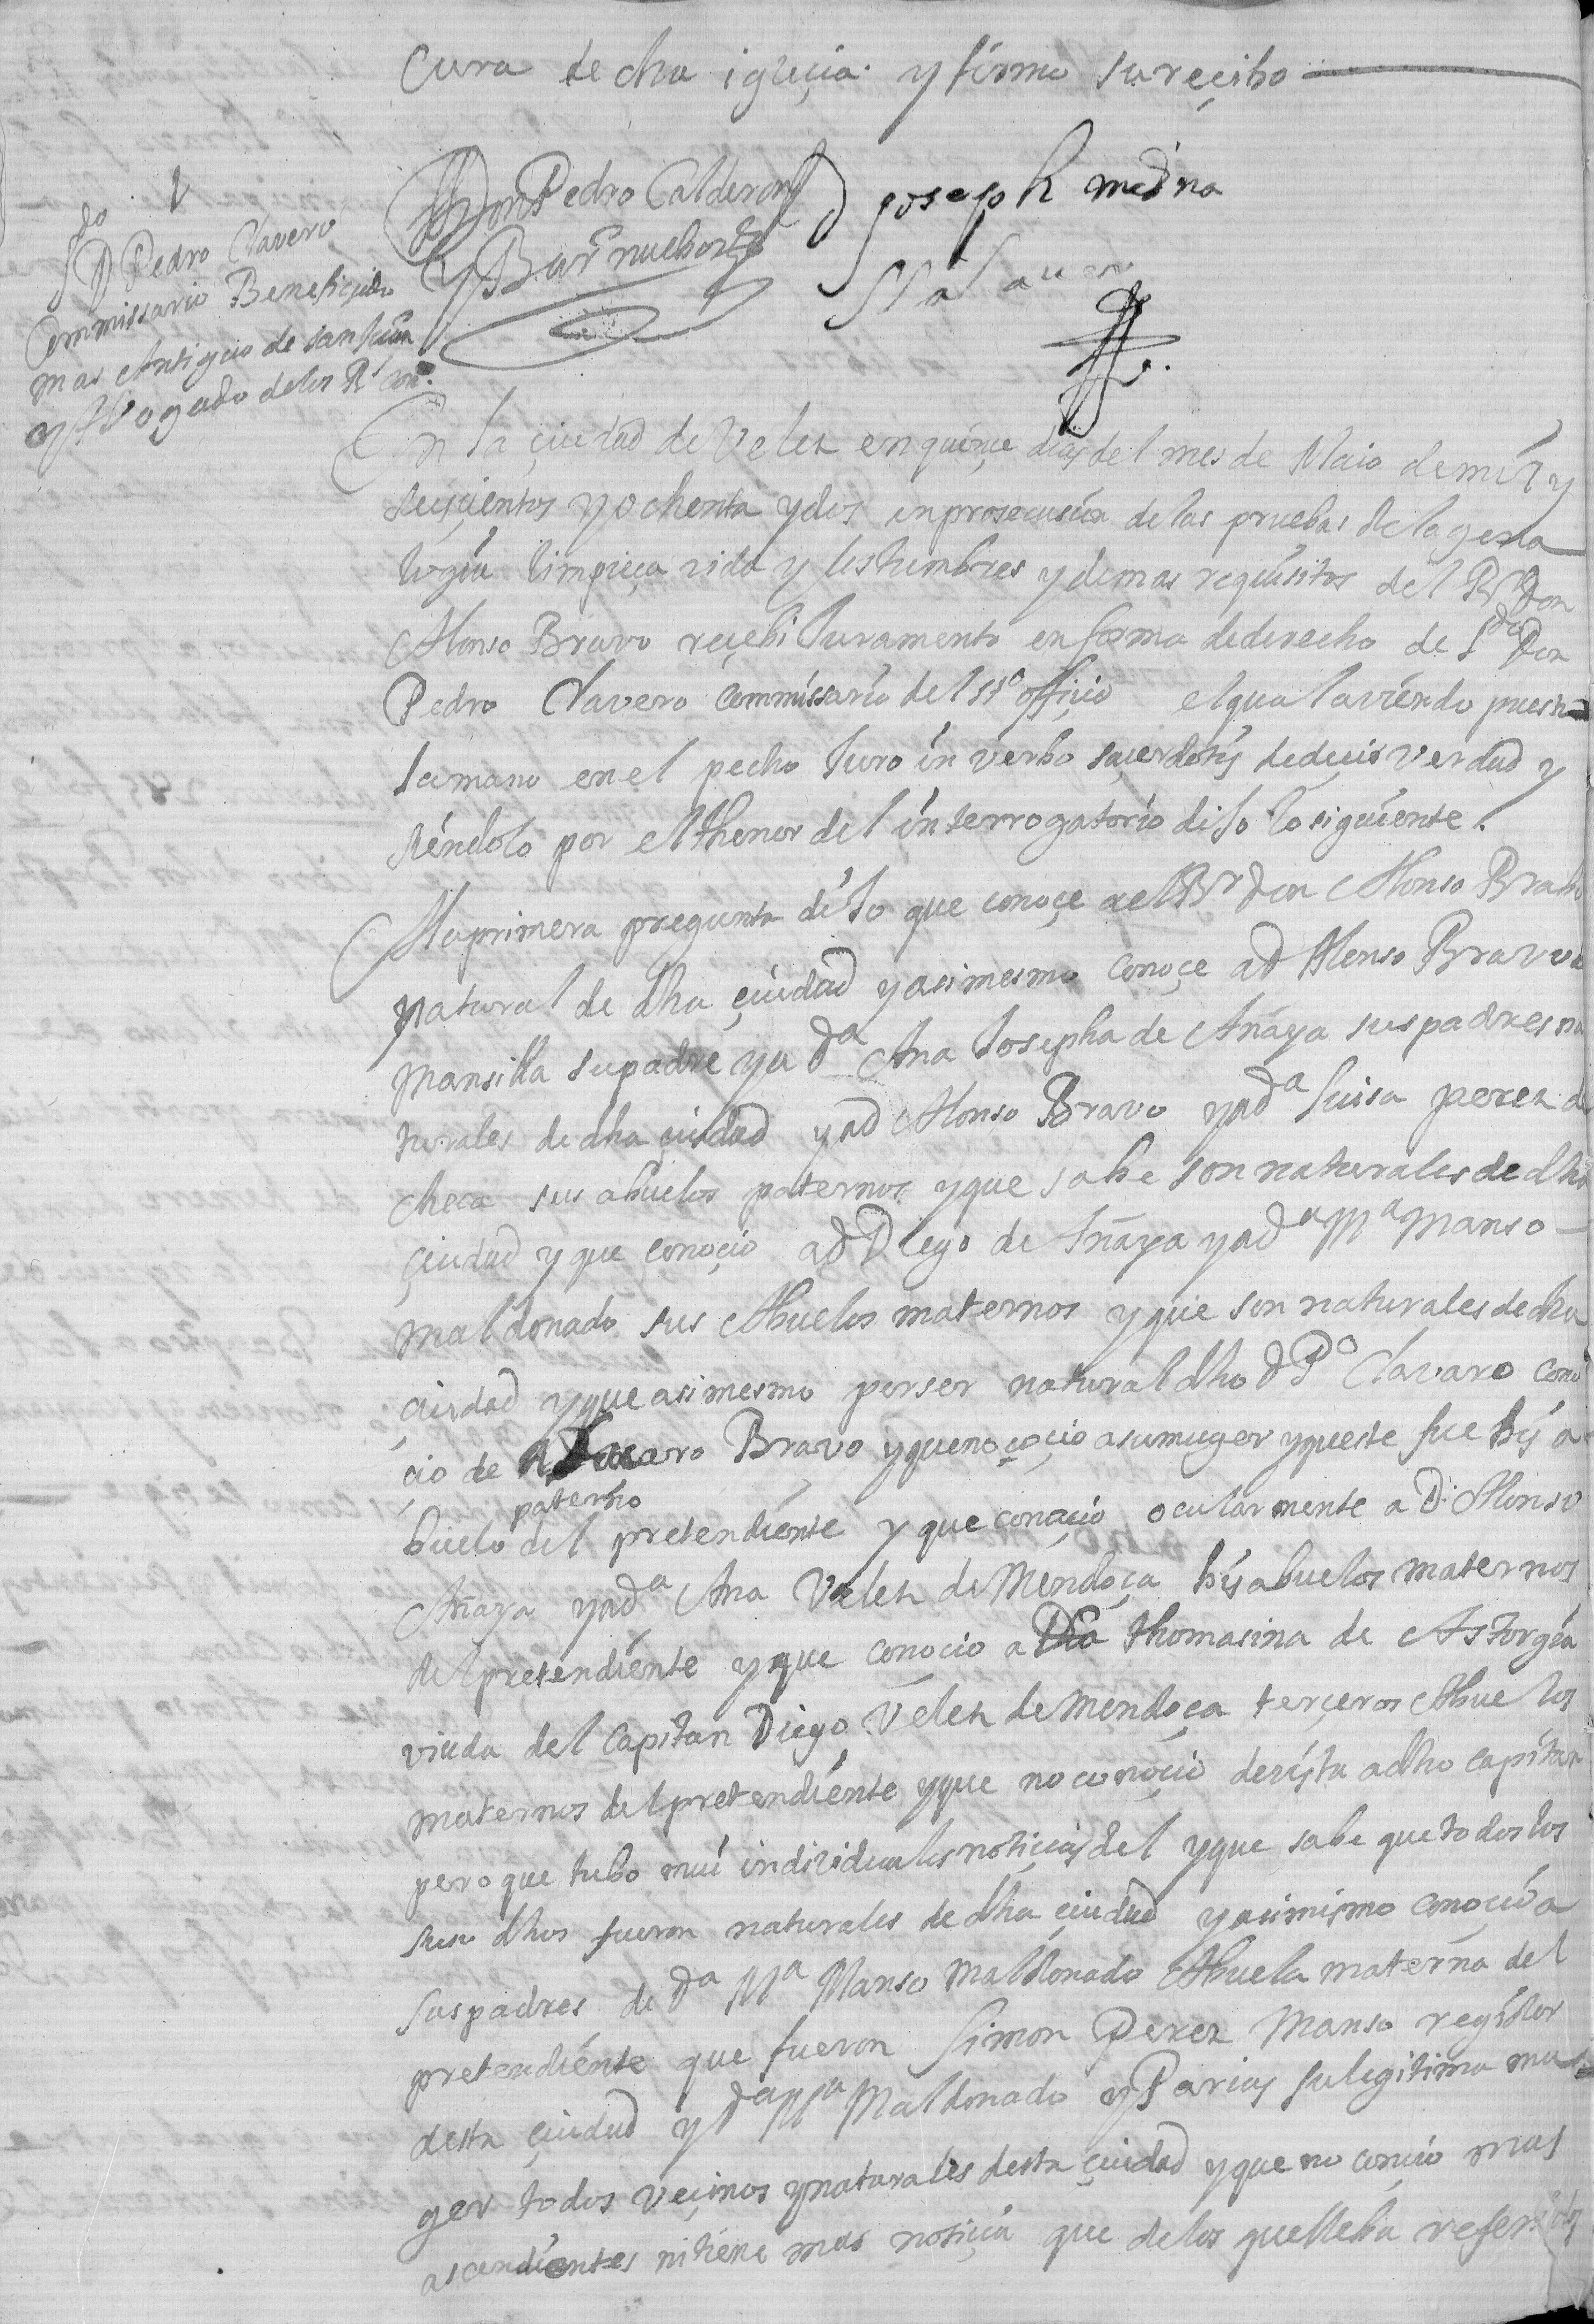 cura de dha igleçia y firmo su reçibo
Don Pedro Calderon
y Barnuebo
D Joseph medna
Salaver
L.do D Pedro Clavero
Commissario Beneficiado
mas Antiguo de san Juan
y Abogado de los R.s con.
En la çiudad de Velez en quinçe dias del mes de Maio de mil y
seisçientos y ochenta y dos en prosecusion de las pruebas de la gena
logia limpieça vida y costumbres y demas requisitos del B.r Don
Alonso Bravo reçebi Juramento en forma de derecho de L.do Don
Pedro Clavero commissario del s.to offiçio el qual aviendo puesto
la mano en el pecho Juro in verbo saçerdotis de deçir verdad y
siendolo por el thenor del interrogatorio dijo lo siguiente.
A la primera pregunta dijo que conoçe a el B.r don Alonso Brabo
natural de dha çiudad y asimesmo conoçe a D Alonso Bravo
Mansilla su padre y a D.a Ana Josepha de Añaya sus padres na
turales de dha çiudad y a D Alonso Bravo y a D.a Luisa perez de
checa sus abuelos paternos y que sabe son naturales de dha
çiudad y que conoçio a D Diego de Añaya y a D.a M.a Manso
maldonado sus Abuelos maternos y que son naturales de dha
çiudad y que asimesmo por ser natural dho D P.o Clavaro cono
çio de Bravo y que no coçio a su muger y que este fue bis a
buelo paterno del pretendiente y que conoçio ocularmente a D. Alonso
Añaya y a D.a Ana Velez de Mendoça bisabuelos maternos
del pretendiente y que conocio a Thomasina de Astorga
viuda del Capitan Diego Velez de Mendoça terçeros Abuelos
maternos del pretendiente y que no conoçio de vista a dho capitan
pero que tubo mui individuales notiçias del y que sabe que todos los
suso dhos fueron naturales de dha çiudad y asimismo conoçio a
sus padres de D.a M.a Manso Maldonado Abuela materna del
pretendiente que fueron Simon Perez Manso regidor
desta çiudad y D.a M.a Maldonado y Parias su legitima mu
ger todos veçinos y naturales desta çiudad y que no conoçio mas
asendientes ni tiene mas notiçia que de los que lleba referidos